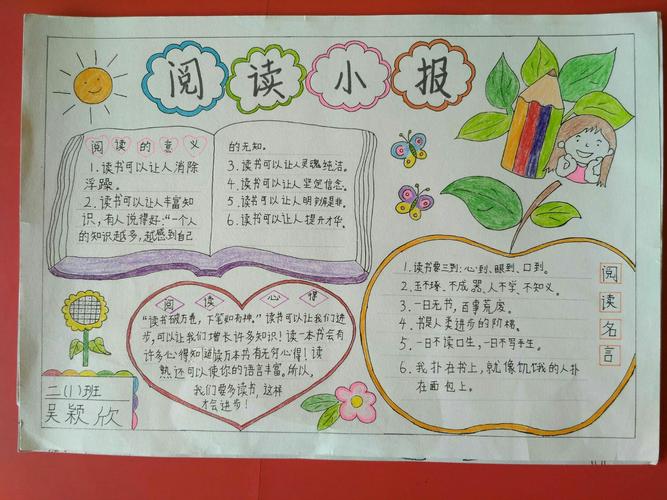 阅读小报
阅读的意义
1.读书可以让人消除
浮躁。
2.读书可以让人丰富知
识,有人说得好:“一个人
的知识越多,越感到自己
的无知。
3.读书可以让人灵魂纯洁。
4.读书可以让人坚定信念。
5.读书可以让人明辨是非。
6.读书可以让人提升才华。
阅读心得
“读书破万卷,下笔如有神。”读书可以让我们进
步,可以让我们增长许多知识!读一本书会有
许多心得知道读万本书有无穷心得!读
熟还可以使你的语言丰富。所以,
我们要多读书,这样
才会进步!
阅读名言
1.读书要三到:心到、眼到、口到。
2.玉不琢、不成器、人不学、不知义。
3.一日无书,百事荒废。
4.书是人类进步的阶梯。
5.一日不读口生,一日不写手生。
6.我扑在书上,就像饥饿的人扑
在面包上。
二(1)班
吴颖欣